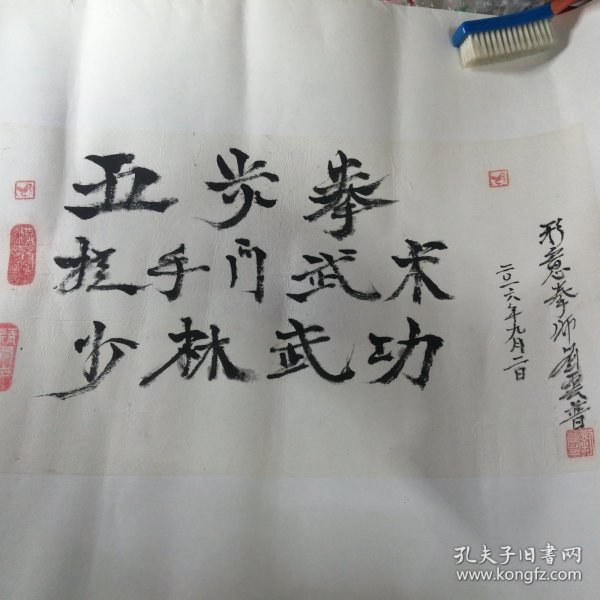 五步拳
挖手门武术
少林武功
二〇一六年九月二日
形意拳师刘云普
孔夫子旧书网
www.kongfz.com